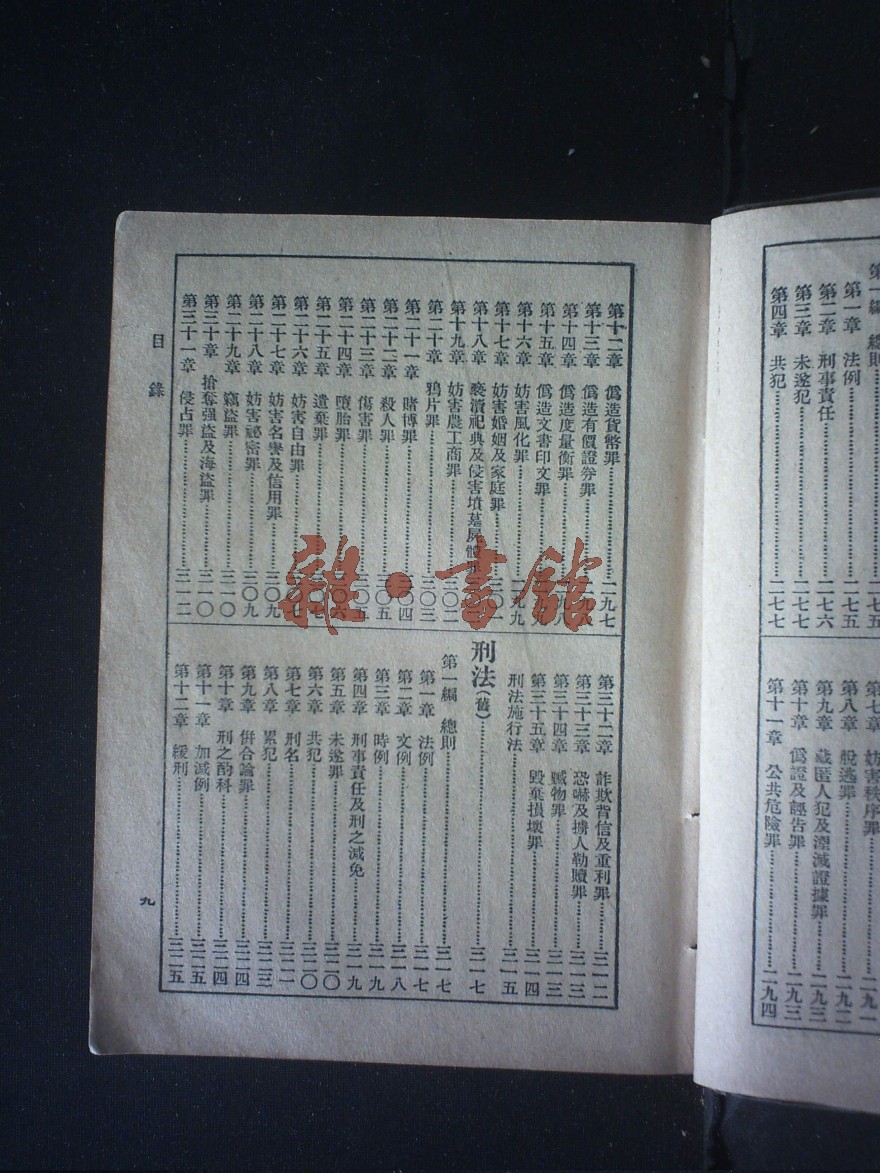 第一編 總則
第一章 法例……二七五
第二章 刑事責任……二七六
第三章 未遂犯……二七七
第四章 共犯……二七七
第七章 妨害秩序罪……二九一
第八章 脫逃罪……二九二
第九章 藏匿人犯及湮滅證據罪……二九三
第十章 僞證及誣告罪……二九三
第十一章 公共危險罪……二九四
第十二章 僞造貨幣罪……二九七
第十三章 僞造有價證券罪
第十四章 僞造度量衡罪
第十五章 僞造文書印文罪
第十六章 妨害風化罪……二九九
第十七章 妨害婚姻及家庭罪……三〇一
第十八章 褻瀆祀典及侵害墳墓屍體罪
第十九章 妨害農工商罪……三〇二
第二十章 鴉片罪……三〇三
第二十一章 賭博罪……三〇四
第二十二章 殺人罪……三〇五
第二十三章 傷害罪
第二十四章 墮胎罪……三〇六
第二十五章 遺棄罪
第二十六章 妨害自由罪……三〇七
第二十七章 妨害名譽及信用罪……三〇九
第二十八章 妨害祕密罪……三〇九
第二十九章 竊盜罪……三一〇
第三十章 搶奪强盜及海盜罪……三一〇
第三十一章 侵占罪……三一二
第三十二章 詐欺背信及重利罪……三一二
第三十三章 恐嚇及擄人勒贖罪……三一三
第三十四章 贓物罪……三一三
第三十五章 毀棄損壞罪……三一四
刑法施行法……三一五
刑法(舊)……三一七
第一編 總則……三一七
第一章 法例……三一七
第二章 文例……三一八
第三章 時例……三一九
第四章 刑事責任及刑之減免……三一九
第五章 未遂罪……三二〇
第六章 共犯……三二〇
第七章 刑名……三二一
第八章 累犯……三二三
第九章 倂合論罪……三二四
第十章 刑之酌科……三二四
第十一章 加減例……三二五
第十二章 緩刑……三二五
目錄
九
雜·書館